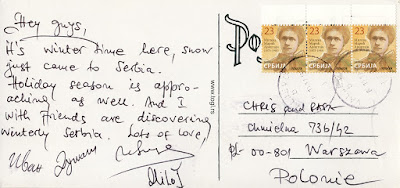 Hey guys,
It's winter time here, snow
just came to Serbia.
Holiday season is appro-
aching as well. And I
with friends are discovering
winterly Serbia. Lots of love,
Иван
Miloš
www.logl.rs
23 23 23
СРБИЈА СРБИЈА СРБИЈА
CHRIS and
Chmielna 73b/42
PL- 00-801 Warszawa
Polonie